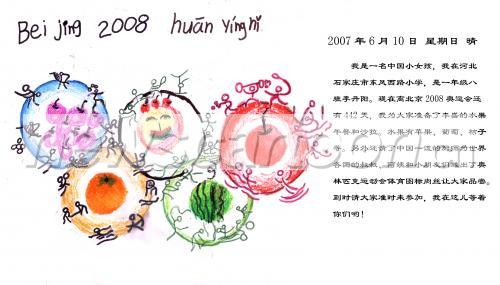 Bei jing 2008 huān yíng nǐ
2007 年 6 月 10 日 星期日 晴
我是一名中国小女孩，我在河北
石家庄市东风西路小学，是一年级八
班李卉阳。现在离北京 2008 奥运会还
有 442 天，我给大家准备了丰盛的水果
午餐和沙拉，水果有苹果、葡萄、桔子
等。另外还请了中国一流的
各国的叔叔、
林匹克运动会体育图标肉丝让大家品尝。
到时请大家准时来参加，我在这儿等着
你们哟！